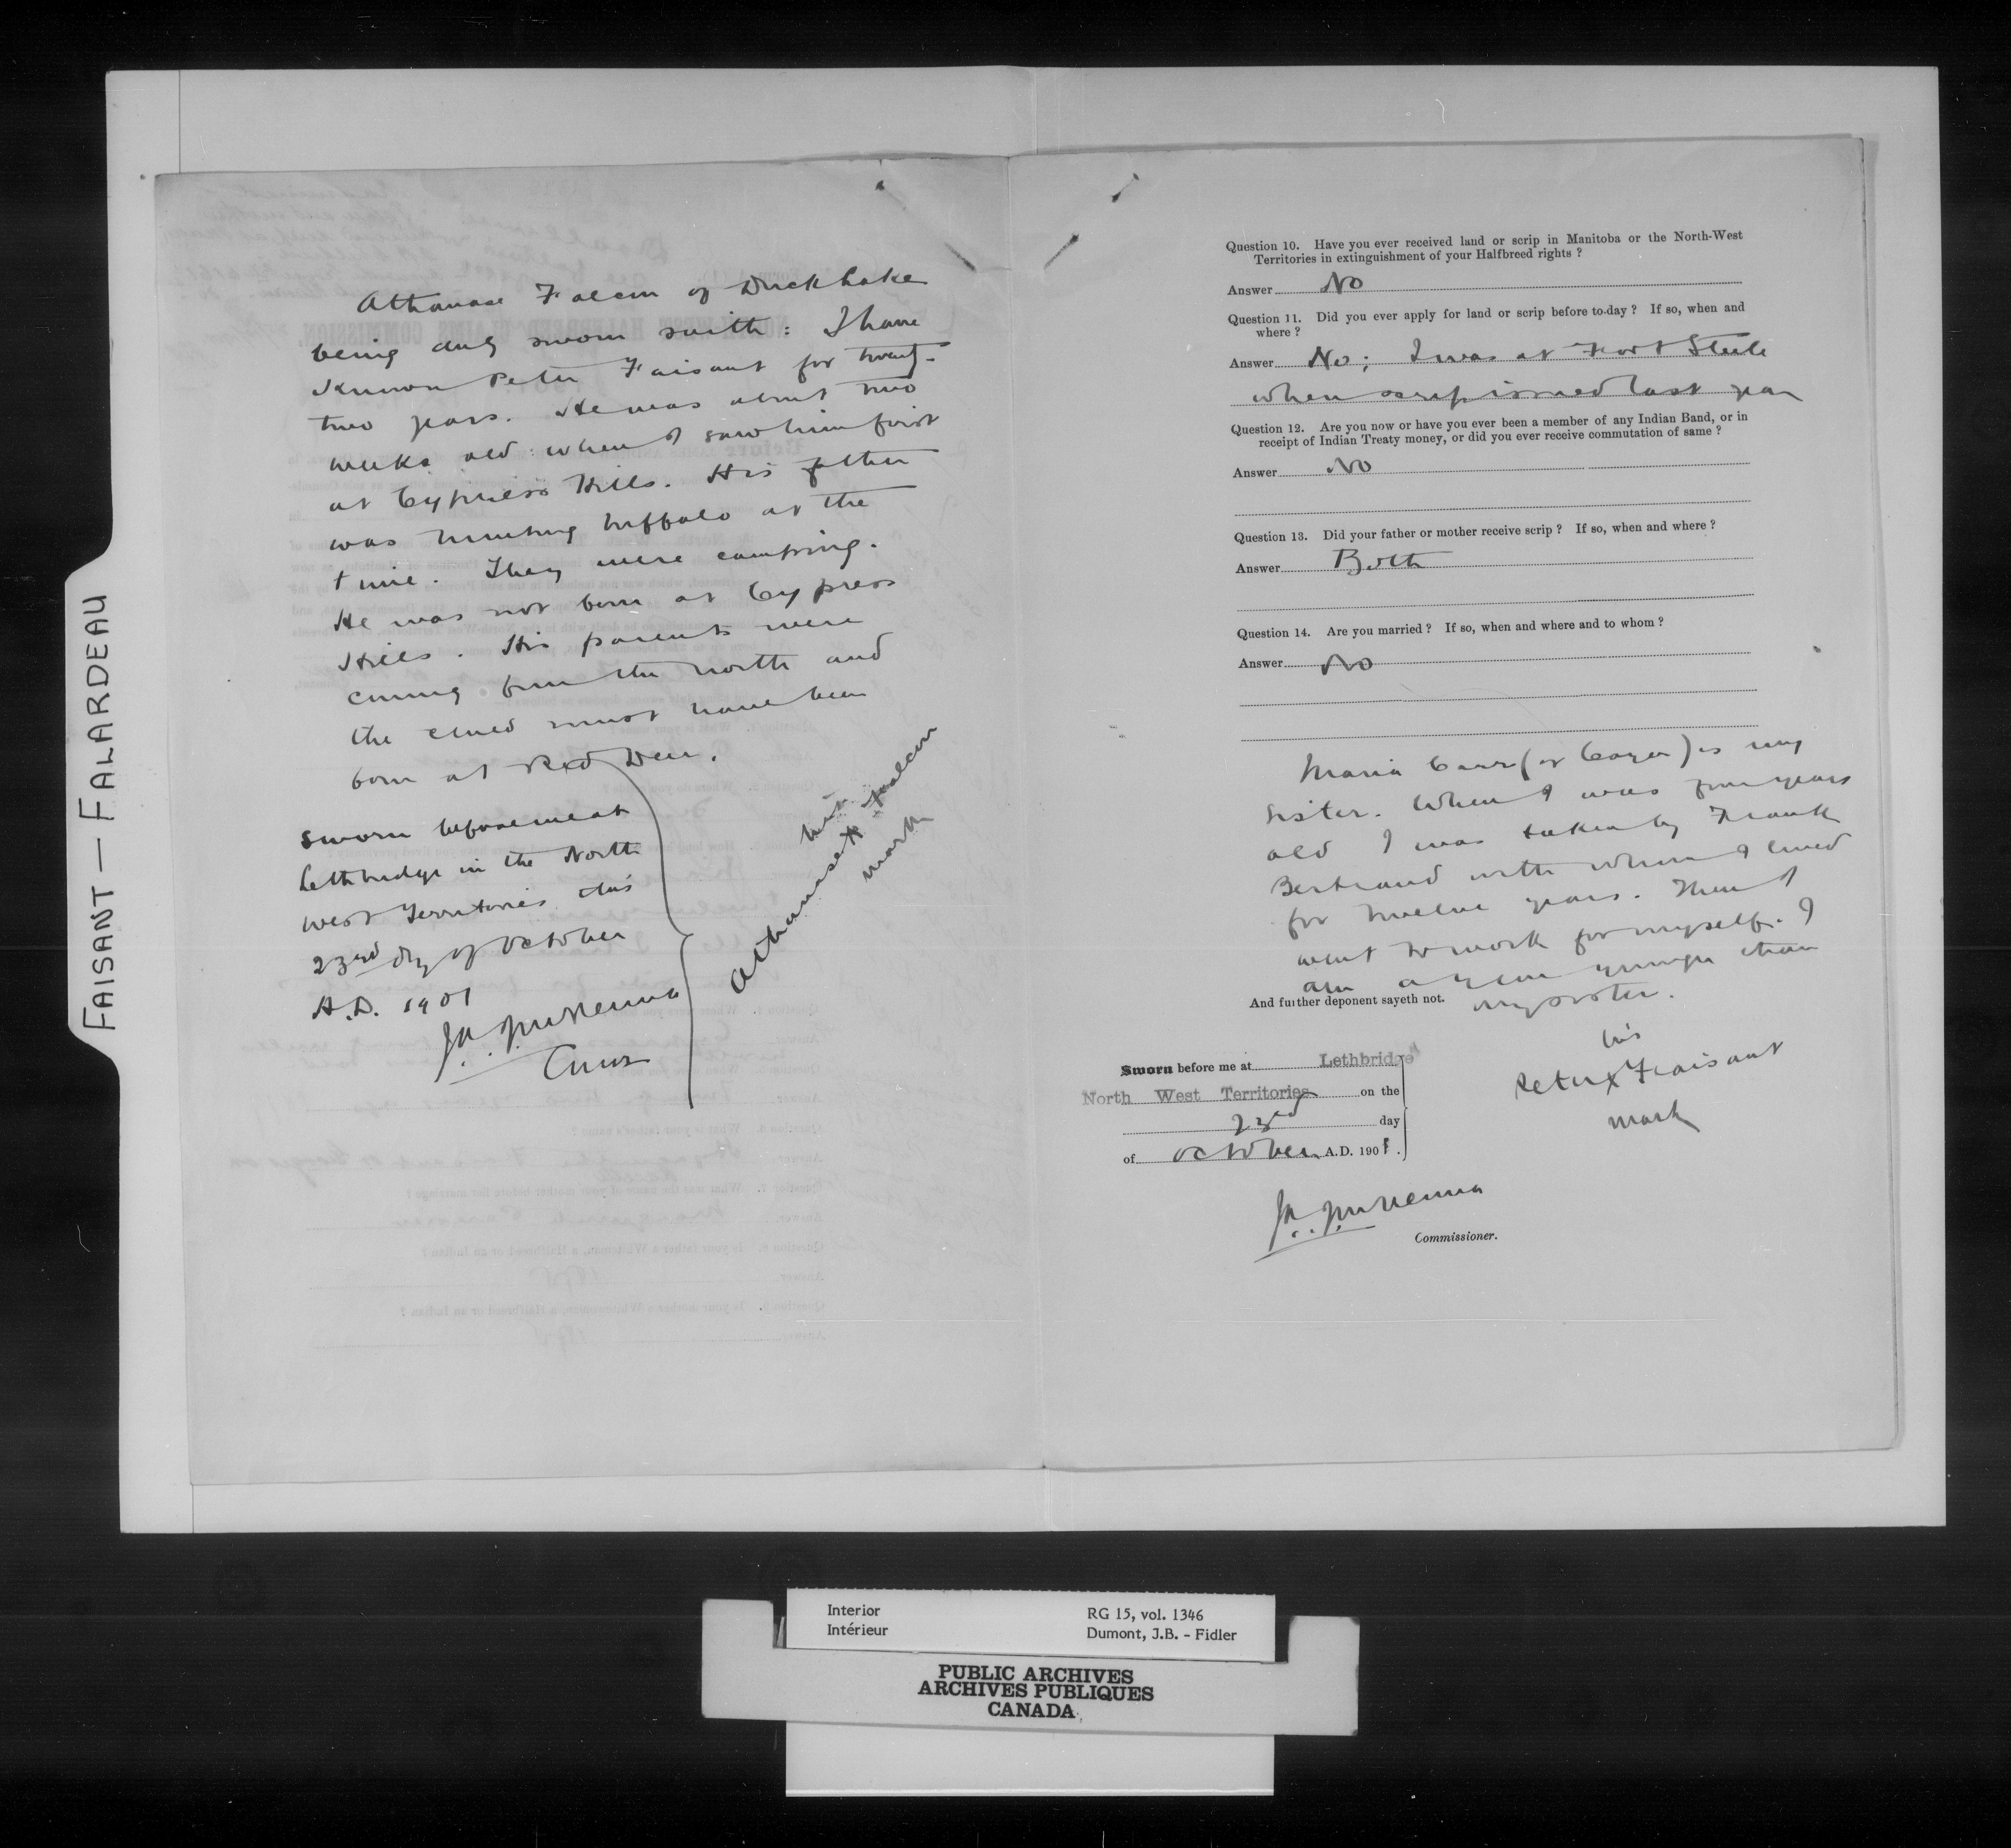 FAISANT — FALARDEAU
Athanase Falcon of Duck Lake
being duly sworn saith: I have
known Peter Faisant for twenty-
two years. He was about two
weeks old when I saw him first
at Cypress Hills. His father
was hunting buffalo at the
time. They were camping.
He was not born at Cypress
Hills. His parents were
coming from the north and
the child must have been
born at Red Deer.
Sworn before me at
Lethbridge in the North
West Territories this
23rd day of October
A.D. 1901
J.A.J. McKenna
Comr
his
Athanase x Falcon
mark
Question 10. Have you ever received land or scrip in Manitoba or the North-West
Territories in extinguishment of your Halfbreed rights ?
Answer No
Question 11. Did you ever apply for land or scrip before to-day ? If so, when and
where ?
Answer No; I was at Fort Steele
when scrip issued last year
Question 12. Are you now or have you ever been a member of any Indian Band, or in
receipt of Indian Treaty money, or did you ever receive commutation of same ?
Answer No
Question 13. Did your father or mother receive scrip ? If so, when and where ?
Answer Both
Question 14. Are you married ? If so, when and where and to whom ?
Answer No
Maria Carr (or Cayer) is my
sister. When I was four years
old I was taken by Frank
Bertrand with whom I lived
for twelve years. Then I
went to work for myself. I
am a year younger than
And further deponent sayeth not. my sister.
Sworn before me at Lethbridge
North West Territories on the
23rd day
of October A.D. 1901.
his
Peter x Faisant
mark
J.A.J. McKenna
Commissioner.
Interior
Intérieur
RG 15, vol. 1346
Dumont, J.B. - Fidler
PUBLIC ARCHIVES
ARCHIVES PUBLIQUES
CANADA